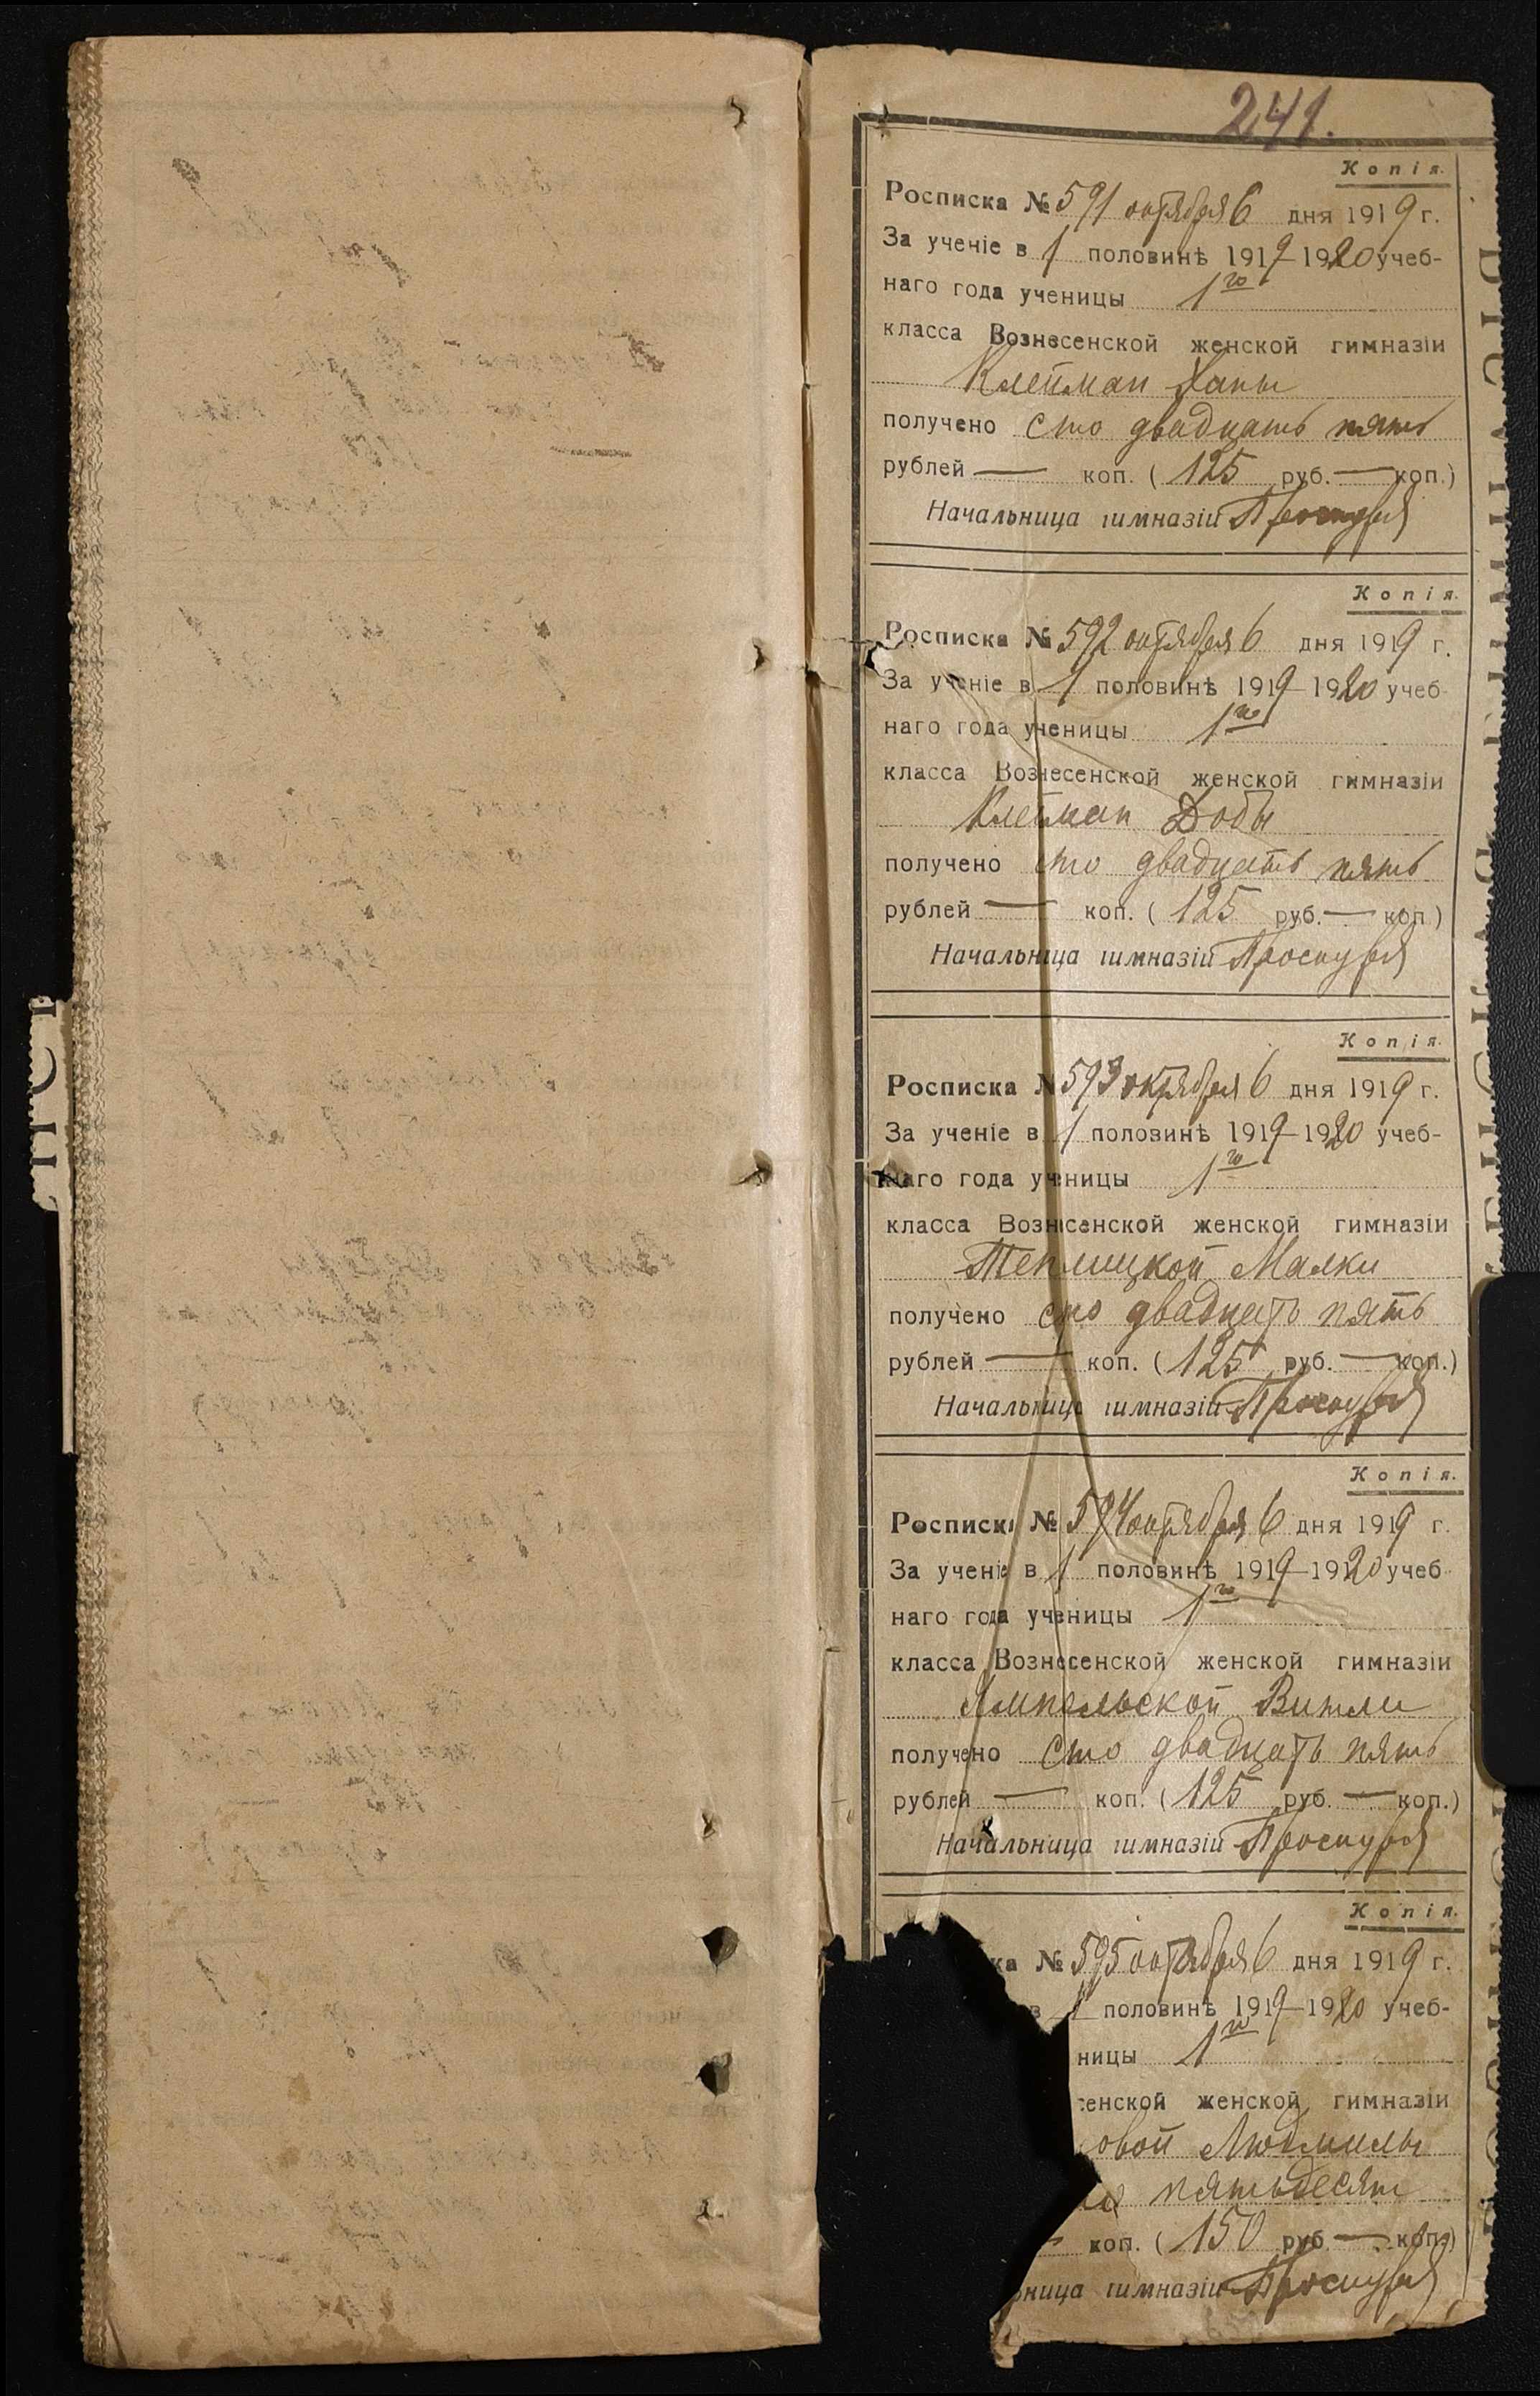 241.
Копія.
Росписка № 591 октября 6 дня 1919 г.
За ученіе в 1 половинѣ 1919—1920 учеб-
наго года ученицы 1го
класса Вознесенской женской гимназіи
Клейман Ханы
получено сто двадцать пять
рублей — коп. (125 руб. — коп.)
Начальница гимназіи
Копія.
Росписка № 592 октября 6 дня 1919 г.
За ученіе в 1 половинѣ 1919—1920 учеб-
наго года ученицы 1го
класса Вознесенской женской гимназіи
Клейман Добы
получено сто двадцать пять
рублей — коп. (125 руб. — коп.)
Начальница гимназіи
Копія.
Росписка № 593 октября 6 дня 1919 г.
За ученіе в 1 половинѣ 1919—1920 учеб-
наго года ученицы 1го
класса Вознесенской женской гимназіи
Теплицкой Малки
получено сто двадцать пять
рублей — коп. (125 руб. — коп.)
Начальница гимназіи
Копія.
Росписка № 594 октября 6 дня 1919 г.
За ученіе в 1 половинѣ 1919—1920 учеб-
наго года ученицы 1го
класса Вознесенской женской гимназіи
Ямпольской Витли
получено сто двадцать пять
рублей — коп. (125 руб. — коп.)
Начальница гимназіи
Копія.
ка № 595 октября 6 дня 1919 г.
в 1 половинѣ 1919—1920 учеб-
ницы 1го
сенской женской гимназіи
овой Людмилы
пятьдесят
— коп. (150 руб. — коп.)
ьница гимназіи